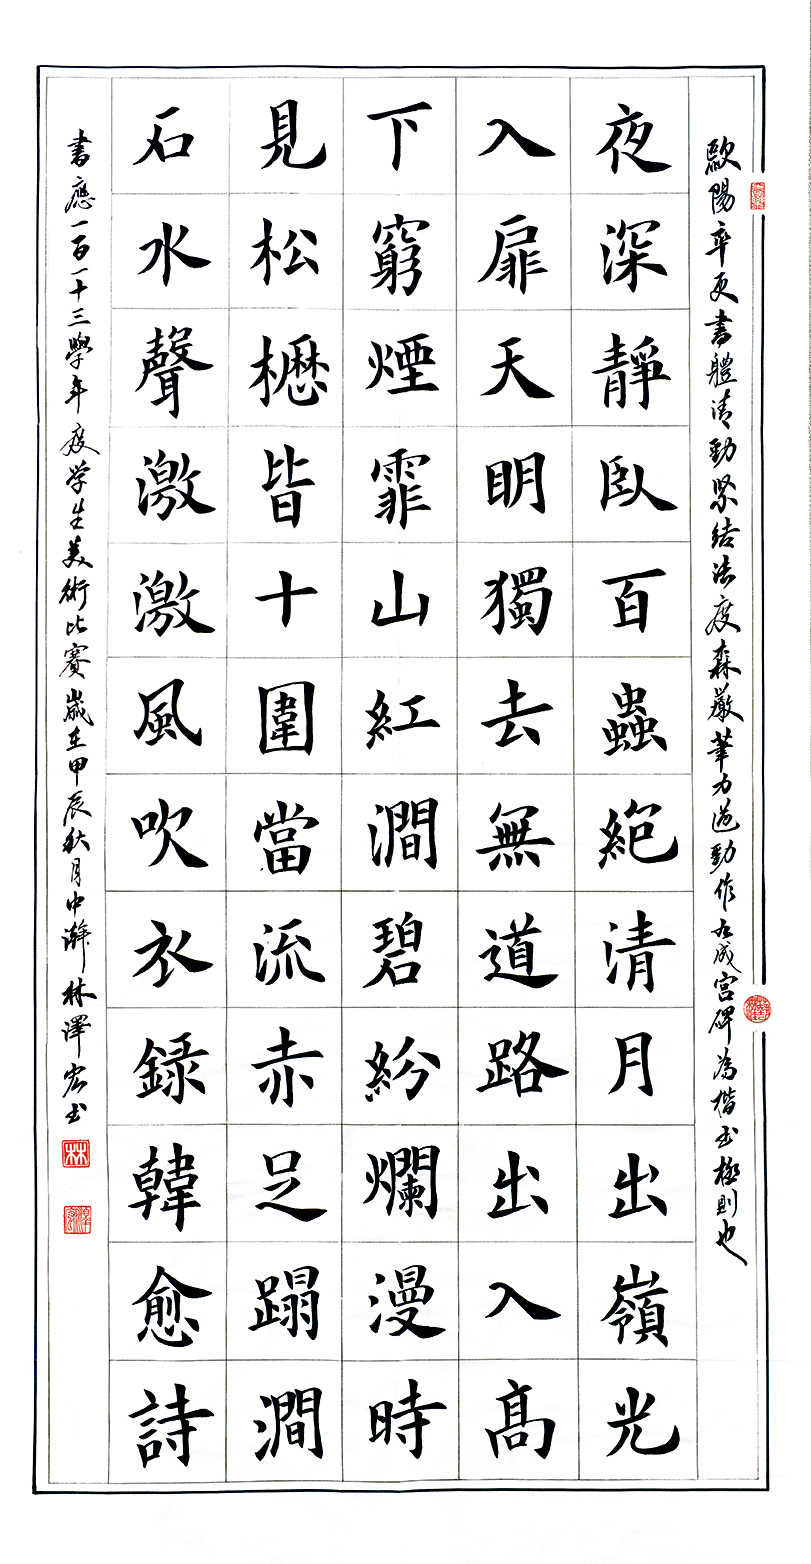 歐陽率更書體清勁緊結法度森嚴筆力遒勁作九成宮碑為楷書極則也
夜深靜臥百蟲絕清月出嶺光
入扉天明獨去無道路出入高
下窮煙霏山紅澗碧紛爛漫時
見松櫪皆十圍當流赤足蹋澗
石水聲激激風吹衣錄韓愈詩
書應一百一十三學年度学生美術比賽歲在甲辰秋月中澣林澤宏書